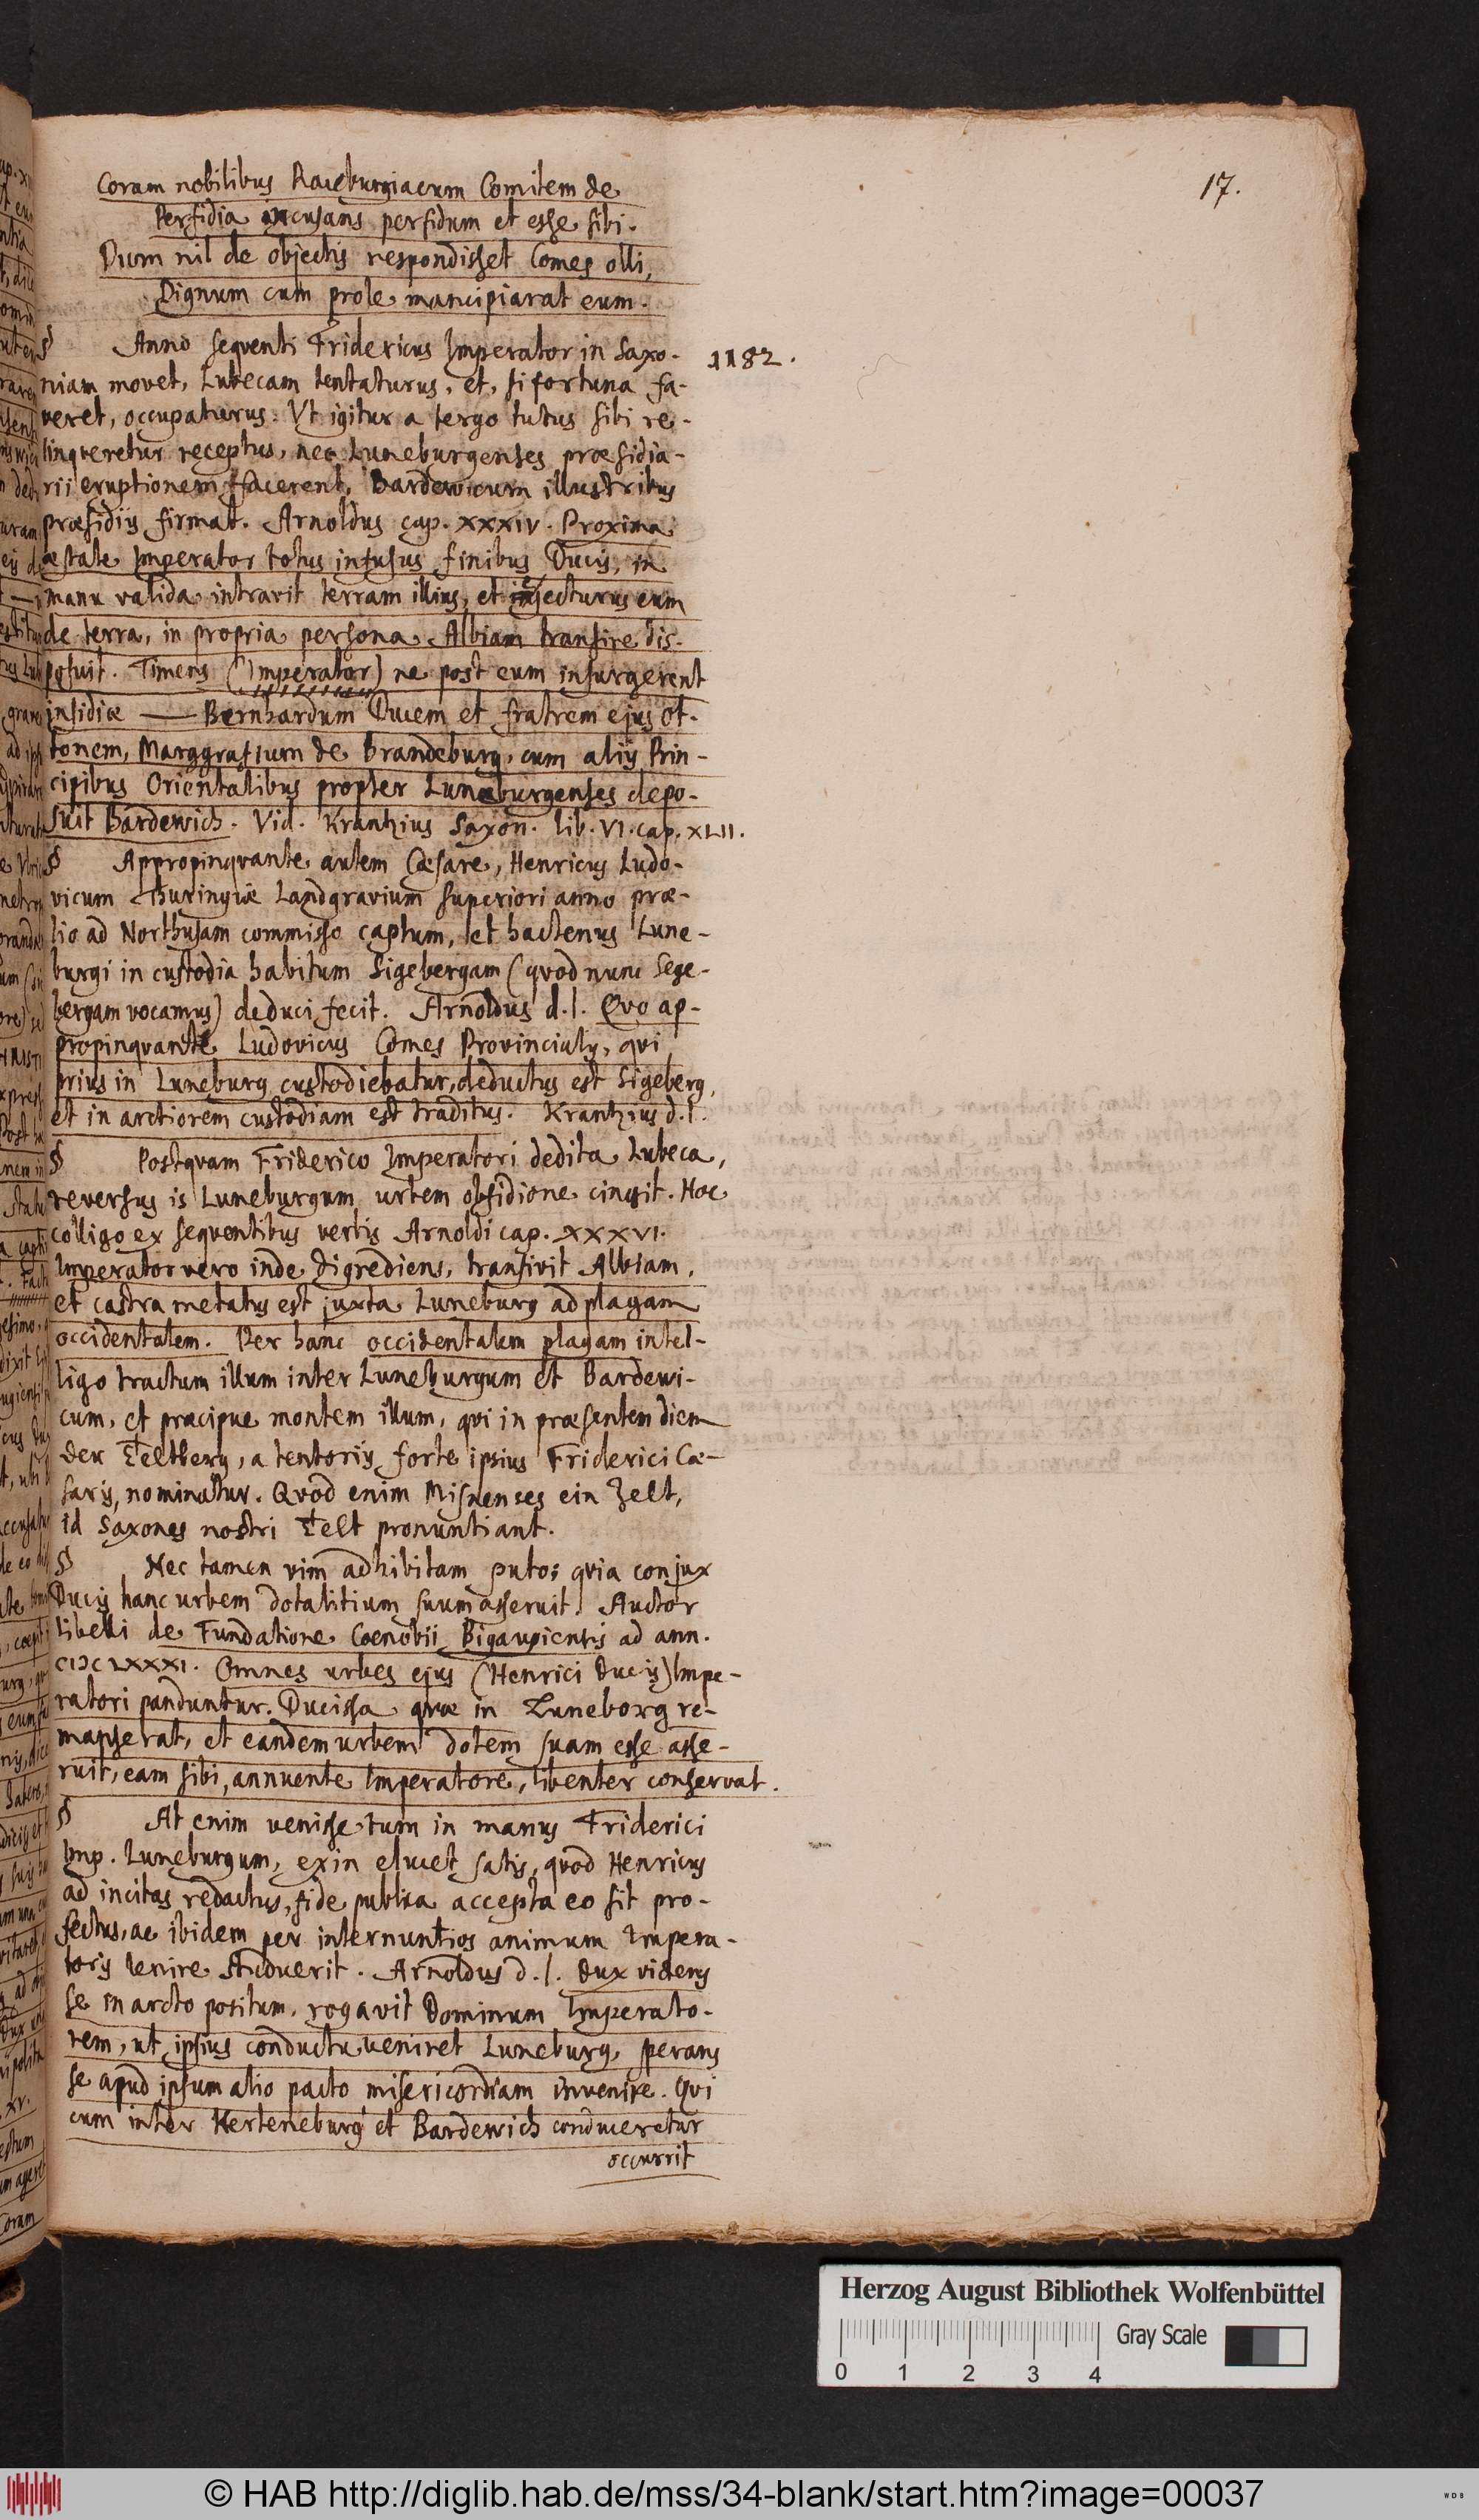 17.
Coram nobilibus Raceburgiacum Comitem de
Perfidia incusans perfidum et esse sibi.
Dum nil de objectis respondisset Comes olli,
Dignum cum prole mancipiarat eum.
§ Anno seqventi Fridericus Imperator in Saxo-
1182.
niam movet, Lubecam tentaturus, et, si fortuna fa-
veret, occupaturus. Vt igitur a tergo tutus sibi re-
linqveretur receptus, nec Luneburgenses præsidia-
rii eruptionem facerent, Bardevicum illustribus
præsidiis firmat. Arnoldus cap. XXXIV. Proxima
æstate Imperator totus infusus finibus Ducis, in
manu valida intravit terram illius, et ejecturus eum
de terra, in propria persona Albiam transire dis-
posuit. Timens (Imperator) ne post eum insurgerent
insidiæ — Bernhardum Ducem et fratrem ejus Ot-
tonem, Marggravium de Brandeburg, cum aliis Prin-
cipibus Orientalibus propter Luneburgenses depo-
suit Bardewich. Vid. Krantzius Saxon. lib. VI. cap. XLII.
§ Appropinqvante autem Cæsare, Henricus Ludo-
vicum Thuringiæ Landgravium superiori anno præ-
lio ad Northusam commisso captum, et hactenus Lune-
burgi in custodia habitum Sigebergam (qvod nunc Sege-
bergam vocamus) deduci fecit. Arnoldus d. l. Qvo ap-
propinqvante Ludovicus Comes Provincialis, qvi
prius in Luneburg custodiebatur, deductus est Sigeberg,
et in arctiorem custodiam est traditus. Krantzius d. l.
§ Postqvam Friderico Imperatori dedita Lubeca,
reversus is Luneburgum urbem obsidione cingit. Hoc
colligo ex seqventibus verbis Arnoldi cap. XXXVI.
Imperator vero inde digrediens, transivit Albiam,
et castra metatus est juxta Luneburg ad plagam
occidentalem. Per hanc occidentalem plagam intel-
ligo tractum illum inter Luneburgum et Bardewi-
cum, et præcipue montem illum, qvi in præsentem diem
der Teltberg, a tentoriis forte ipsius Friderici Cæ-
saris, nominatur. Qvod enim Misnenses ein Zelt,
id Saxones nostri Telt pronuntiant.
§ Nec tamen vim adhibitam puto; qvia conjux
Ducis hanc urbem dotalitium suum asseruit. Auctor
libelli de Fundatione Coenobii Bigaugiensis ad ann.
CIƆCLXXXI. Omnes urbes ejus (Henrici Ducis) Impe-
ratori panduntur. Ducissa qvæ in Luneborg re-
manserat, et eandem urbem dotem suam esse asse-
ruit, eam sibi, annuente Imperatore, libenter conservat.
§ At enim venisse tum in manus Friderici
Imp. Luneburgum, exin elucet satis, qvod Henricus
ad incitas redactus, fide publica accepta eo sit pro-
fectus, ac ibidem per internuntios animum Impera-
toris lenire studuerit. Arnoldus d. l. Dux videns
se in arcto positum, rogavit Dominum Imperato-
rem, ut ipsius conductu veniret Luneburg, sperans
se apud ipsum alio pacto misericordiam invenire. Qvi
cum inter Herteneburg et Bardewich conduceretur
occurrit
Herzog August Bibliothek Wolfenbüttel
0 1 2 3 4 Gray Scale
© HAB http://diglib.hab.de/mss/34-blank/start.htm?image=00037
WDB